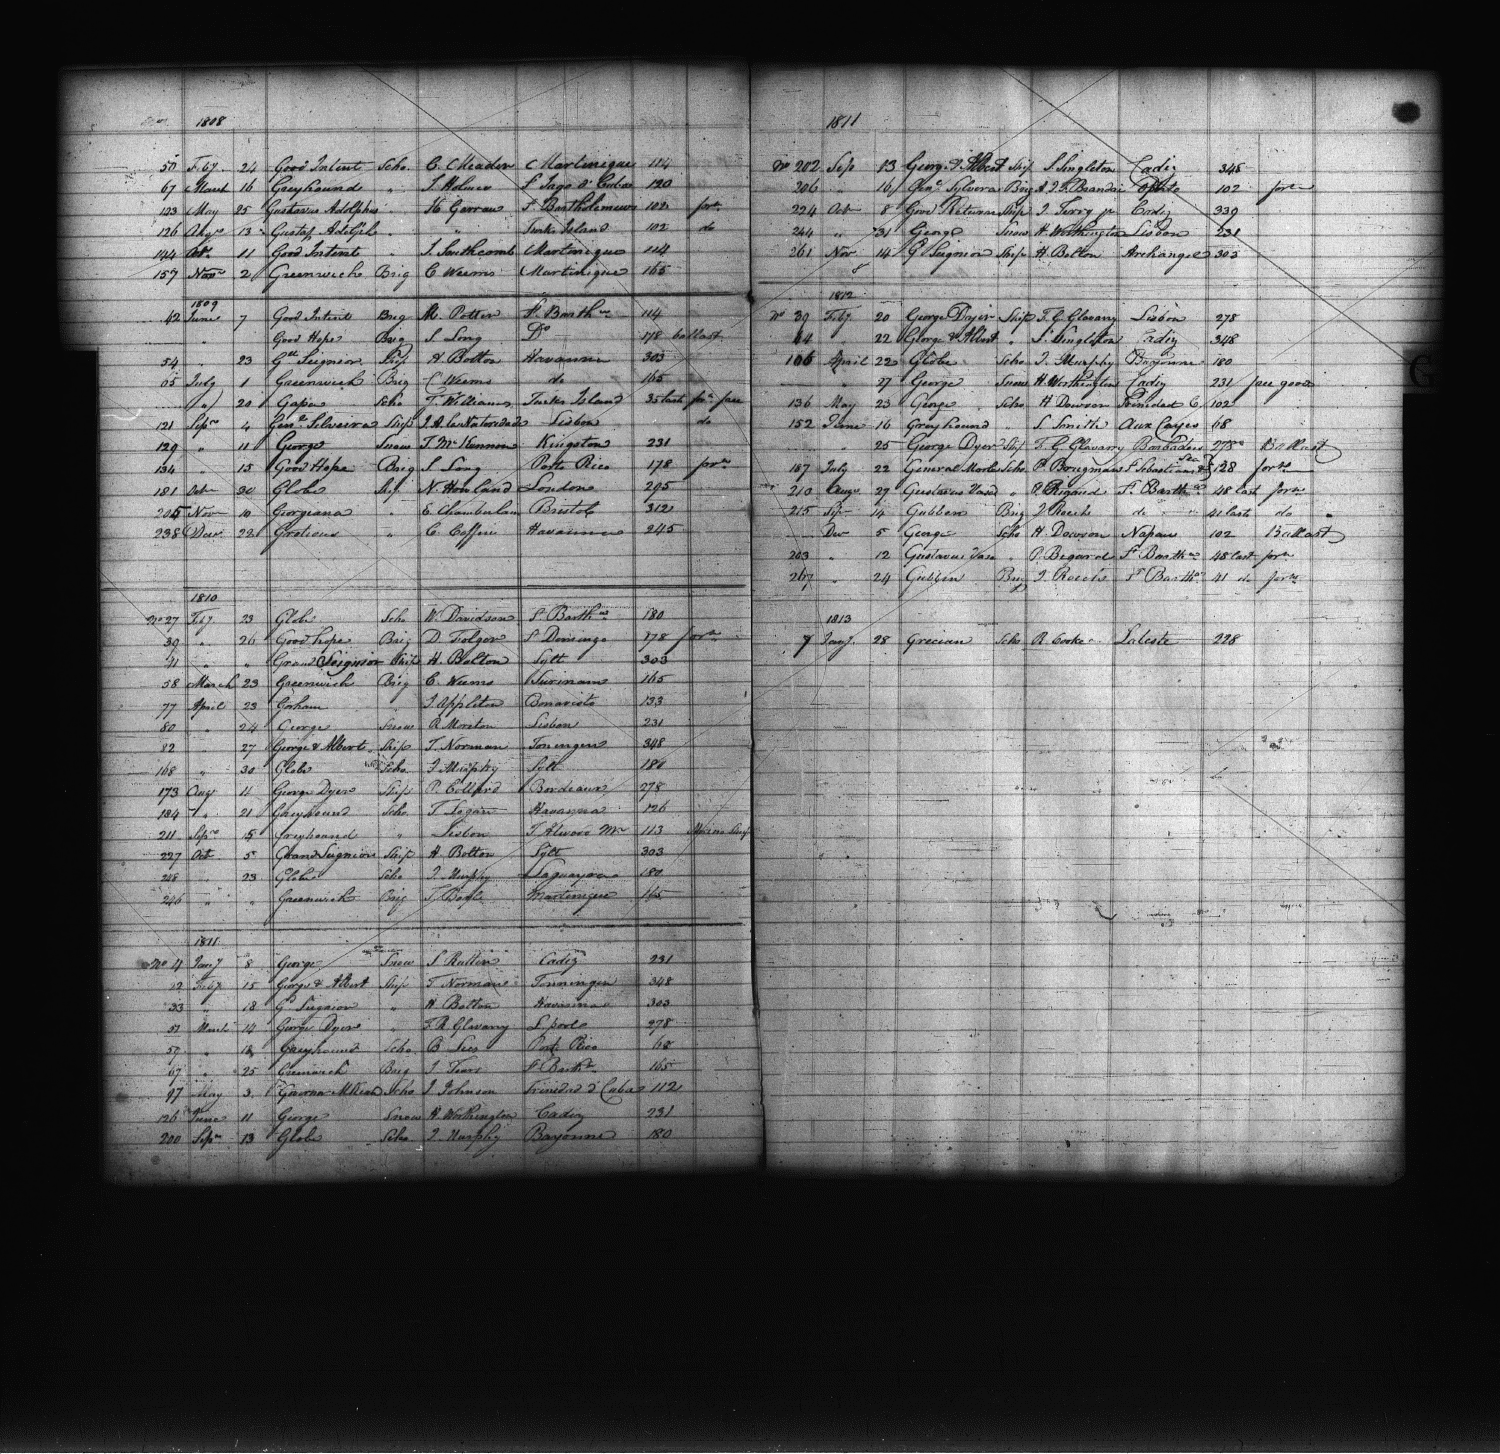 1808
50 Feby 24 Good Intent Scho. C. Meader Martinique 114
67 March 16 Greyhound " J. Holmes St Jago d' Cuba 120
103 May 25 Gustavus Adolphus " H. Gerrau St Bartholemews 102 forn
126 Augt 13 Gustaf Adolphe " " Turks Island 102 do
144 Oct 11 Good Intent " J. Southcomb Martinique 114
157 Novr 2 Greenwich Brig C Weems Martinique 165
1809
42 June 7 Good Intent Brig M. Potter St Barthws 114
" Good Hope Brig S. Long Do 178 ballast
54 " 23 Gd Seignior Ship H Bolton Havanna 303
65 July 1 Greenwich Brig C Weems do 165
20 Gape Scho T. Williams Turks Island 35 last forn free
121 Sepr 4 Genl Silveira Ship Lisbon do
129 " 11 George Snow T. McKunnon Kingston 231
134 " 15 Good Hope Brig S. Long Porto Rico 178 forn
181 Octr 30 Globe Ship N. Howland London 295
205 Novr 10 Georgiana " E. Chamberlain Bristol 312
238 Decr 22 Grotious " C. Coffin Havanna 245
1810
No 27 Feby 23 Globe Scho W. Davidson St Barthws 180
39 " 26 Good hope Brig D. Folger St Domingo 178 forn
41 " " Grand Seignior Ship H. Bolton Sylt 303
58 March 23 Greenwich Brig C. Weems Surinam 165
77 April 23 Gorham " J. Appleton Bonavista 133
80 " 24 George Snow R Moreton Lisbon 231
82 " 27 George & Albert Ship T. Norman Toningen 348
168 " 30 Globe Scho. J Murphy Sylt 180
173 Aug 11 George Dyer Ship P. Collard Bordeaux 278
184 " 21 Greyhound Scho. T. Logan Havanna 126
211 Sepr 15 Greyhound " Lisbon T. Atwood Mr 113
227 Oct 5 Grand Seignior Ship H. Bolton Sylt 303
248 " 23 Globe Scho J. Murphy Laguayra 180
246 " " Greenwich Brig Martinique 165
1811
No 4 Jany 8 George Snow S. Rutter Cadiz 231
12 Feby 15 George & Albert Ship T Norman Tonningen 348
33 " 18 Gd Seignior " H Bolton Havanna 303
51 March 14 George Dyer " T. R. Glavany 278
57 " 18 Greyhound Scho B. Lees Porto Rico 68
67 " 25 Greenwich Brig J Tears St Barths 165
97 May 3 Scho J Johnson Trinidad d' Cuba 112
126 June 11 George Snow H Worthington Cadiz 231
200 Sepr 13 Globe Scho J Murphy Bayonne 180
1811
No 202 Sep 13 George & Albert Ship S. Singleton Cadiz 348
206 " 16 Genl Sylvera Brig Oporto 102 forn
224 Oct 8 Good Return Ship J. Terry jr Cadiz 339
244 " 31 George Snow H Worthington Lisbon 231
261 Nov 14 Gd Seignior Ship H Bolton Archangel 303
1812
No 39 Feby 20 George Dyer Ship T. G. Glavany Lisbon 278
44 " 22 George & Albert " S. Singleton Cadiz 348
106 April 22 Globe Scho J. Murphy Bayonne 180
" 27 George Snow H Worthington Cadiz 231 free goods
136 May 23 George Scho H Dawson Trinidad C 102
152 June 16 Greyhound " S. Smith Aux Cayes 68
" 25 George Dyer Ship T. G Glavany Barbadoes 278 Ballast
187 July 22 General Scho. P. Brugman St Sebastians 128 forn
210 Augt 27 Gustavus Vasa " P. Begard St Barthws 48 last forn
215 Sep 14 Gubben Brig J Roechs do 41 lasts do
Der 5 George Scho H Dawson Napan 102 Ballast
263 " 12 Gustavus Vasa " P. Begard St Barthws 48 last forn
267 " 24 Gubbin Brig J. Roechs St Barths 41 do forn
1813
7 Jany 28 Grecian Scho R. Cooke 228
G